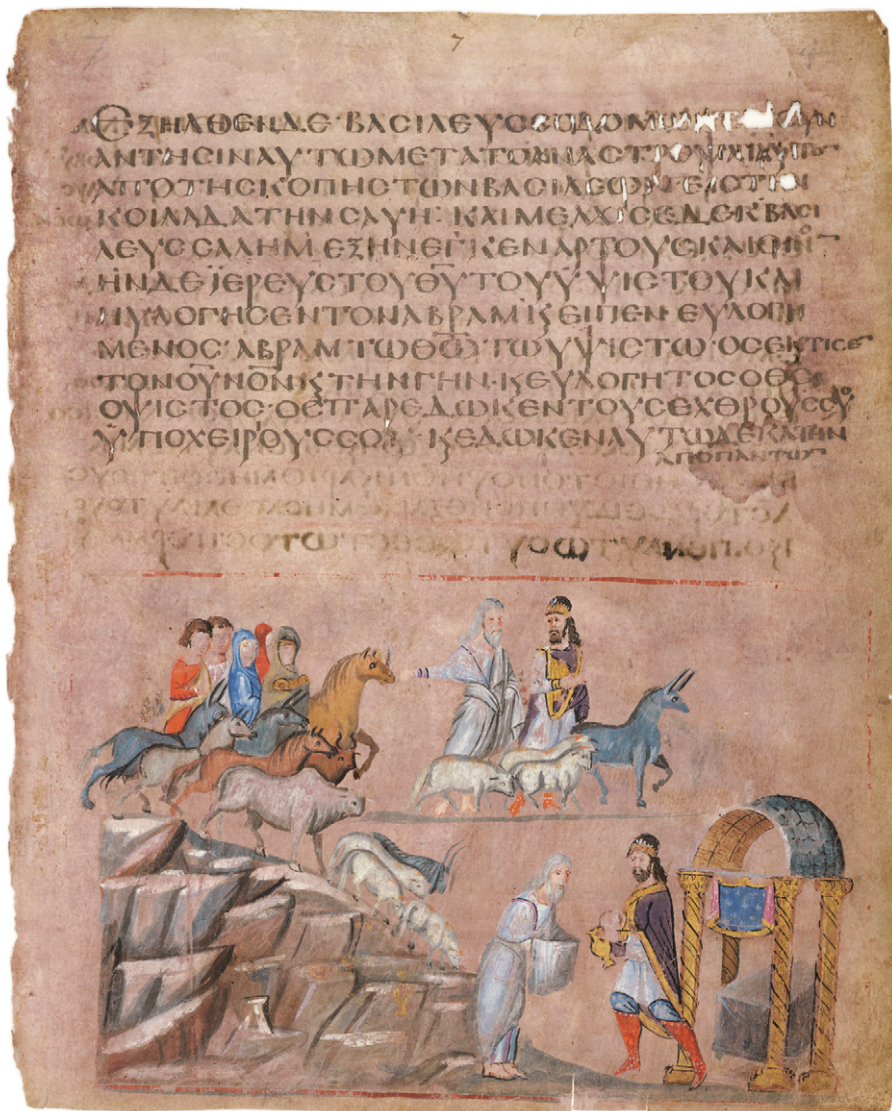 7
ΕΞΗΛΘΕΝΔΕ ΒΑCΙΛΕΥC CΟΔΟΜΩΝ
ΑΝΤΗCΙΝΑΥΤΩΜΕΤΑΤΟΑΝΑCΤΡΟΝΑΙ
ΑΠΟΤΗCΚΟΠΗCΤΩΝΒΑCΙΛΕΩΝ ΕΙC ΤΗΝ
ΚΟΙΛΑΔΑΤΗΝCΑΥΗ: ΚΑΙΜΕΛΧΙCΕΔΕΚΒΑCΙ
ΛΕΥCCΑΛΗΜ ΕΞΗΝΕΓΚΕΝΑΡΤΟΥCΚΑΙΟΙΝΟ̅
ΗΝΔΕΪΕΡΕΥCΤΟΥΘ̅Υ̅ΤΟΥΫΨΙCΤΟΥΚΑΙ
ΗΥΛΟΓΗCΕΝΤΟΝΑΒΡΑΜ·Ϗ ΕΙΠΕΝ·ΕΥΛΟΓΗ
ΜΕΝΟC·ΑΒΡΑΜ·ΤΩΘ̅Ω̅ΤΩΥΨΙCΤΩ·ΟCΕΚΤΙCΕ̅
ΤΟΝΟΥΝΟΝϏ ΤΗΝΓΗΝ·Ϗ ΕΥΛΟΓΗΤΟCΟΘC
ΟΥΨΙCΤΟC·ΟCΠΑΡΕΔΩΚΕΝΤΟΥCΕΧΘΡΟΥCCΟΥ
ΫΠΟΧΕΙΡΟΥCCΟΙ·ϏΕΔΩΚΕΝΑΥΤΩΔΕΚΑΤΗΝ
ΑΠΟΠΑΝΤΩ̅